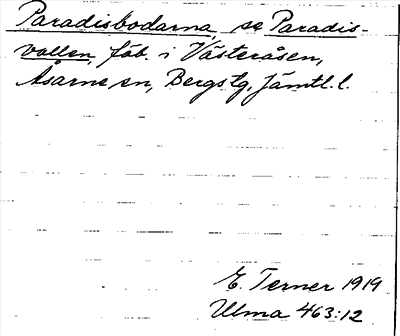 Paradisbodarna, se Paradis-
vallen, fäb. i Västeråsen,
Åsarne sn, Bergs tg, Jämtl. l.
E. Terner 1919
Ulma 463:12